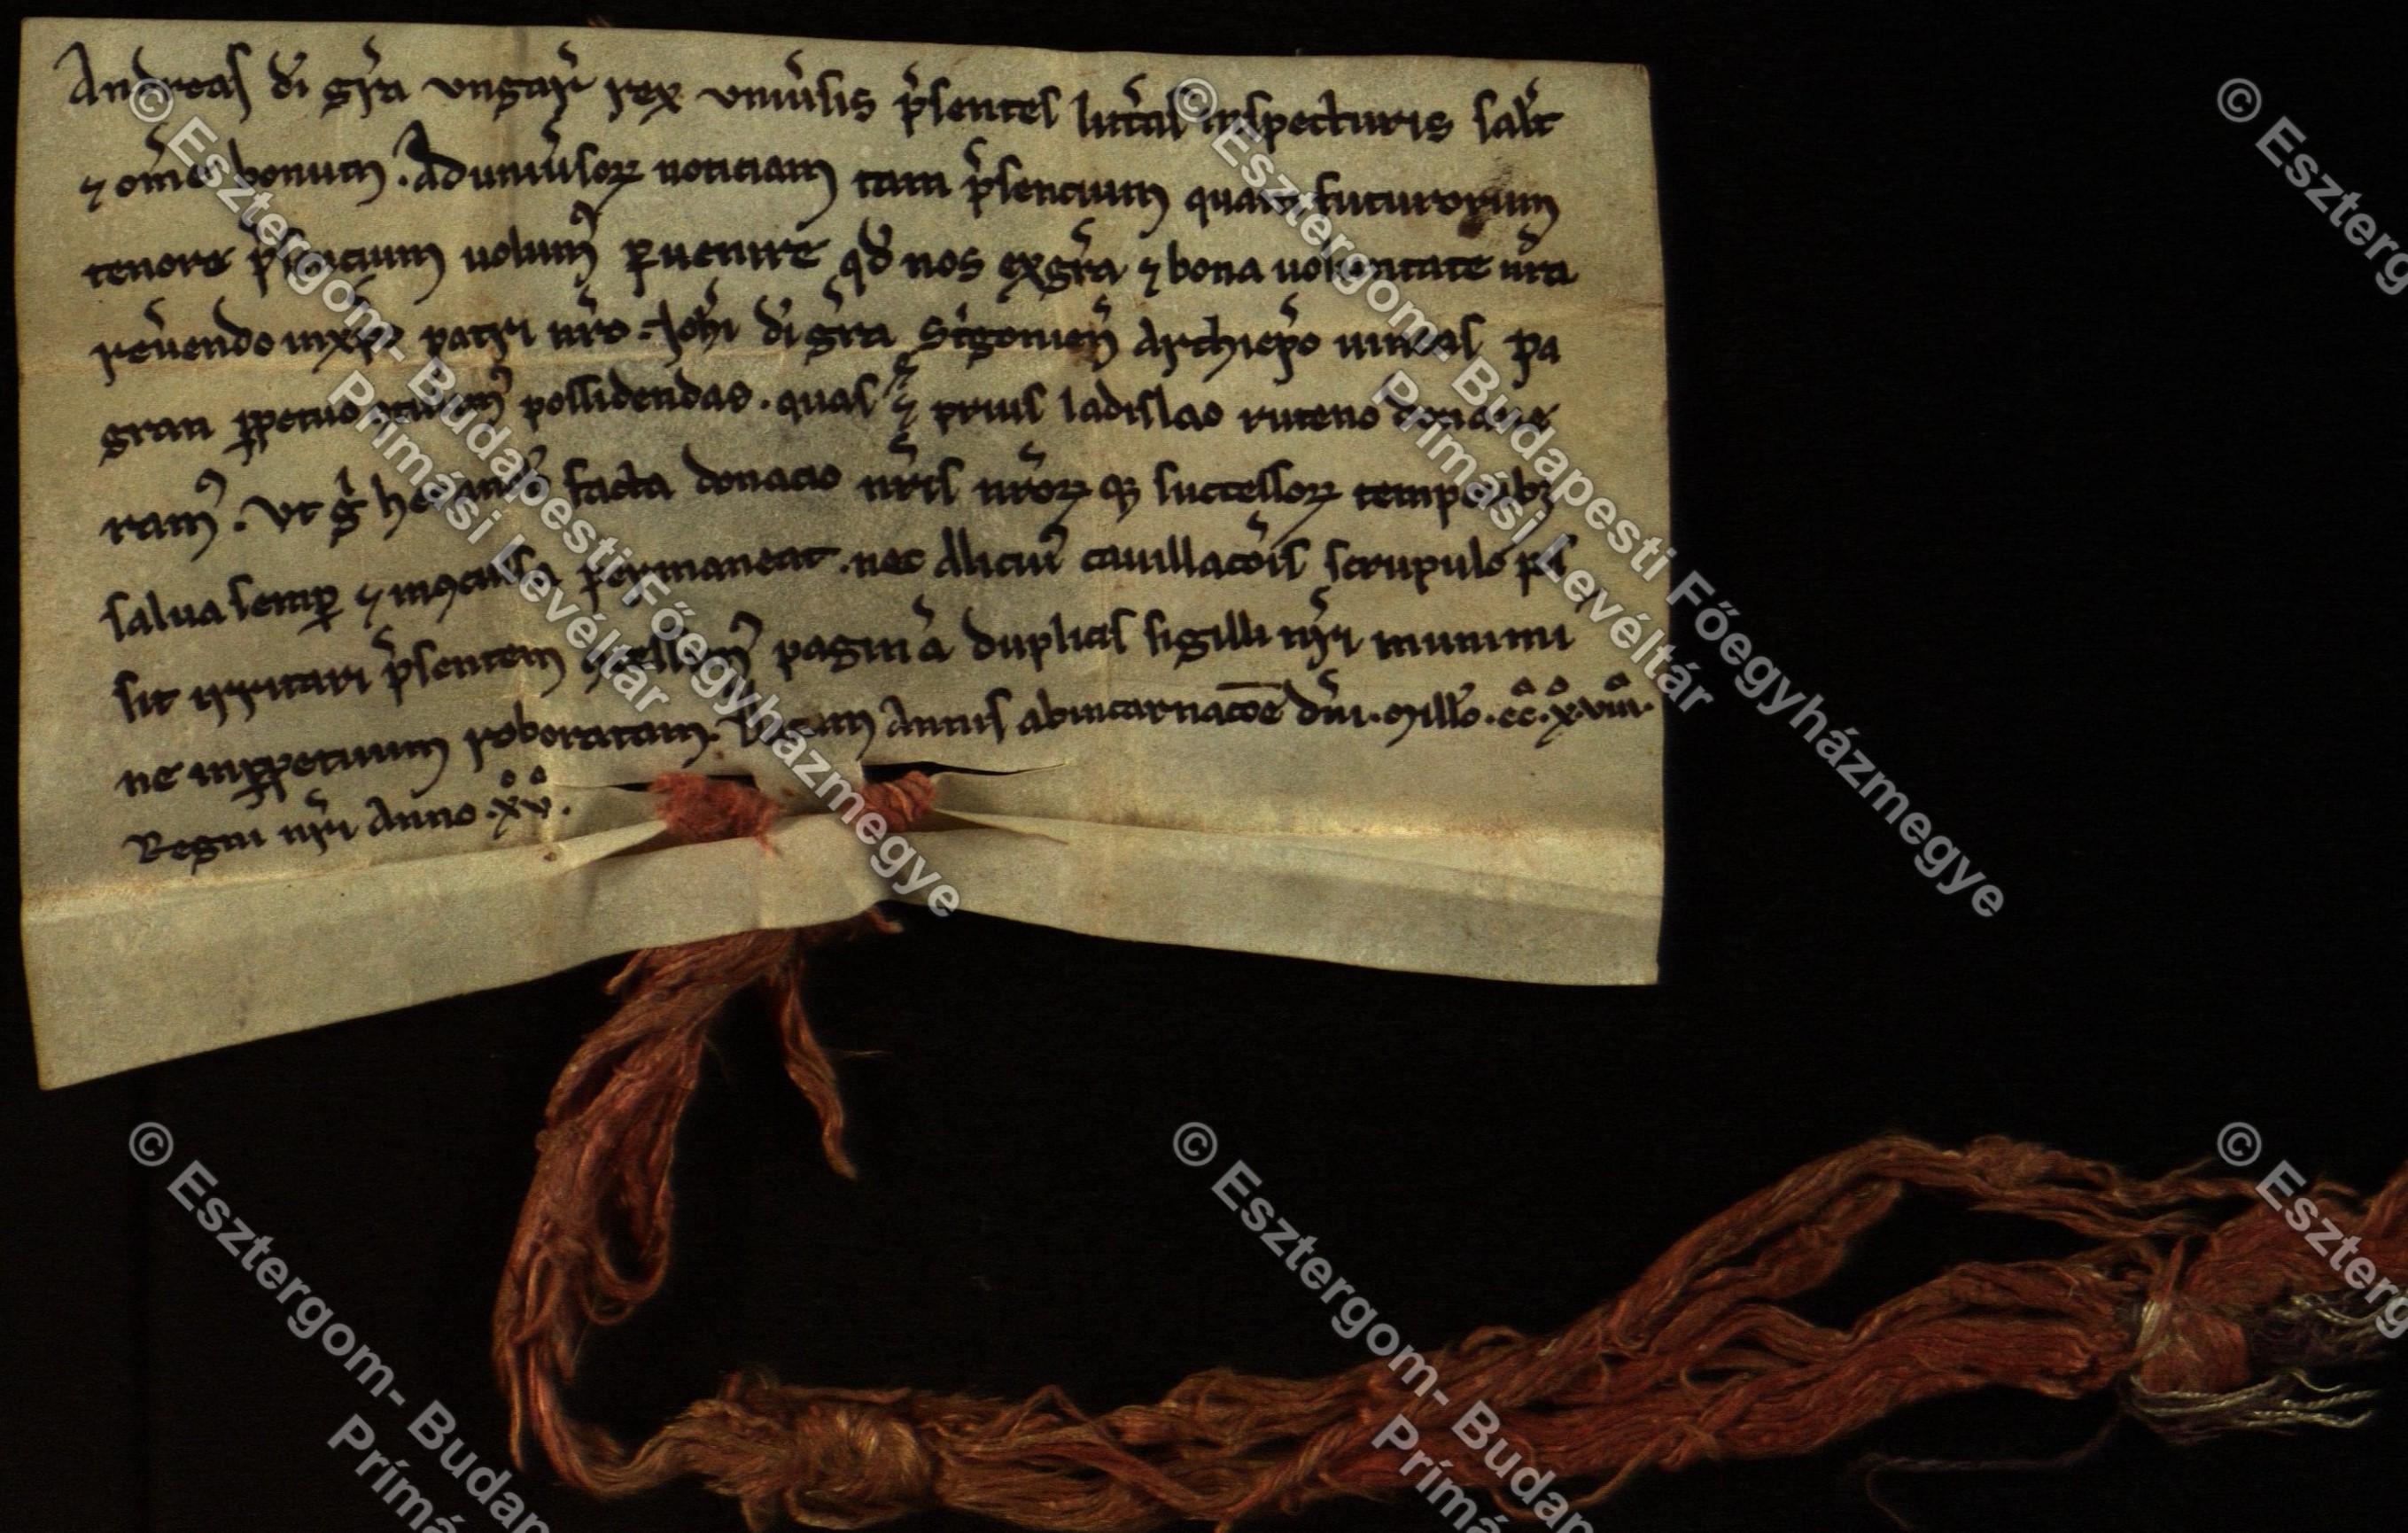 Andreas di gra vngarie rex vniuersis presentes litteras inspecturis salt
⁊ ome bonum. Ad uniuersorꝝ noticiam tam presencium quam futurorum
tenore presencium uolumꝰ ꝑuenire qd nos ex gra ⁊ bona uoluntate nra
reuendo in xpo patri nro. Johi di gra Strigonien Archiepo uineas Pa
gran ꝑpetuo possidendas. quas ⁊ prius ladislao ruteno
ramꝰ. Vt facta donacio nris nrorꝝ qꝫ successorꝝ temporibꝫ
salua semꝑ ⁊ inconcussa permaneat. nec alicuiꝰ cauillacois scrupulo pos
sit irritari presentem paginam duplicis sigilli nri munimi
ne in ꝑpetuum roboratam. Datum Annis ab incarnacoe dni. Millo. cc. x. viiii.
Regni nri Anno. xv.
© Esztergom- Budapesti Főegyházmegye
Prímási Levéltár
© Esztergom- Budapesti Főegyházmegye
Prímási Levéltár
© Esztergom
© Esztergom- Budap
Prímá
© Esztergom- Budap
Prímá
© Esztergom